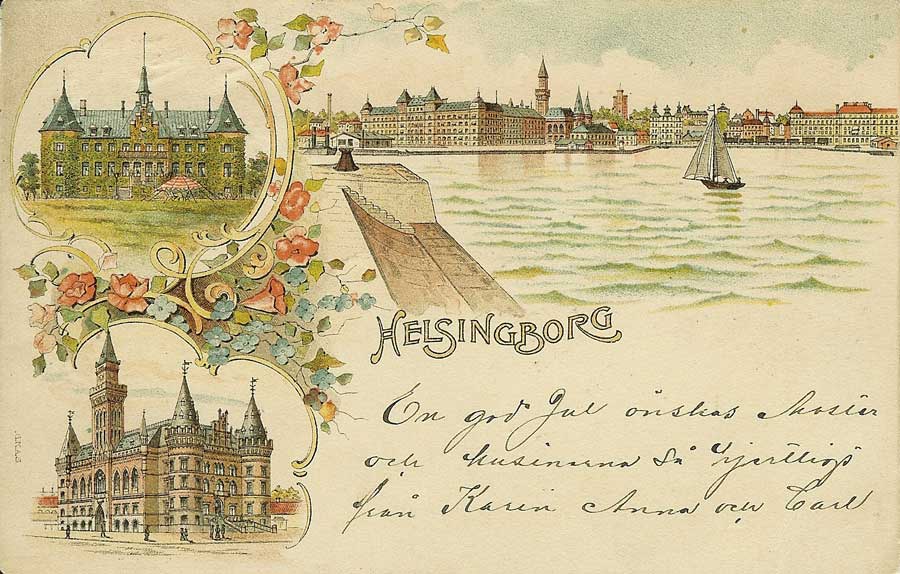 HELSINGBORG
En god Jul önskas Moster
och kusinerna så hjertligt
från Karin Anna och Carl